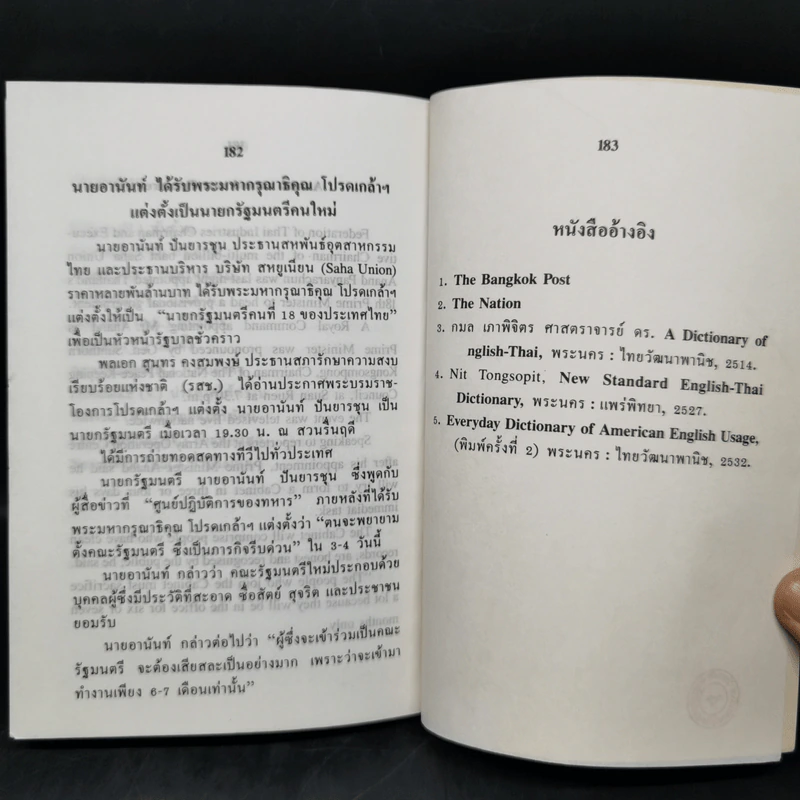 182
นายอานันท์ ได้รับพระมหากรุณาธิคุณ โปรดเกล้าฯ
แต่งตั้งเป็นนายกรัฐมนตรีคนใหม่
นายอานันท์ ปันยารชุน ประธานสหพันธ์อุตสาหกรรม
ไทย และประธานบริหาร บริษัท สหยูเนี่ยน (Saha Union)
ราคาหลายพันล้านบาท ได้รับพระมหากรุณาธิคุณ โปรดเกล้าฯ
แต่งตั้งให้เป็น “นายกรัฐมนตรีคนที่ 18 ของประเทศไทย”
เพื่อเป็นหัวหน้ารัฐบาลชั่วคราว
พลเอก สุนทร คงสมพงษ์ ประธานสภารักษาความสงบ
เรียบร้อยแห่งชาติ (รสช.) ได้อ่านประกาศพระบรมราช-
โองการโปรดเกล้าฯ แต่งตั้ง นายอานันท์ ปันยารชุน เป็น
นายกรัฐมนตรี เมื่อเวลา 19.30 น. ณ สวนรื่นฤดี
ได้มีการถ่ายทอดสดทางทีวีไปทั่วประเทศ
นายกรัฐมนตรี นายอานันท์ ปันยารชุน ซึ่งพูดกับ
ผู้สื่อข่าวที่ “ศูนย์ปฏิบัติการของทหาร” ภายหลังที่ได้รับ
พระมหากรุณาธิคุณ โปรดเกล้าฯ แต่งตั้งว่า “ตนจะพยายาม
ตั้งคณะรัฐมนตรี ซึ่งเป็นภารกิจรีบด่วน” ใน 3-4 วันนี้
นายอานันท์ กล่าวว่า คณะรัฐมนตรีใหม่ประกอบด้วย
บุคคลผู้ซึ่งมีประวัติที่สะอาด ซื่อสัตย์ สุจริต และประชาชน
ยอมรับ
นายอานันท์ กล่าวต่อไปว่า “ผู้ซึ่งจะเข้าร่วมเป็นคณะ
รัฐมนตรี จะต้องเสียสละเป็นอย่างมาก เพราะว่าจะเข้ามา
ทำงานเพียง 6-7 เดือนเท่านั้น”
183
หนังสืออ้างอิง
1. The Bangkok Post
2. The Nation
3. กมล เภาพิจิตร ศาสตราจารย์ ดร. A Dictionary of
nglish-Thai, พระนคร : ไทยวัฒนาพานิช, 2514.
4. Nit Tongsopit, New Standard English-Thai
Dictionary, พระนคร : แพร่พิทยา, 2527.
5. Everyday Dictionary of American English Usage,
(พิมพ์ครั้งที่ 2) พระนคร : ไทยวัฒนาพานิช, 2532.